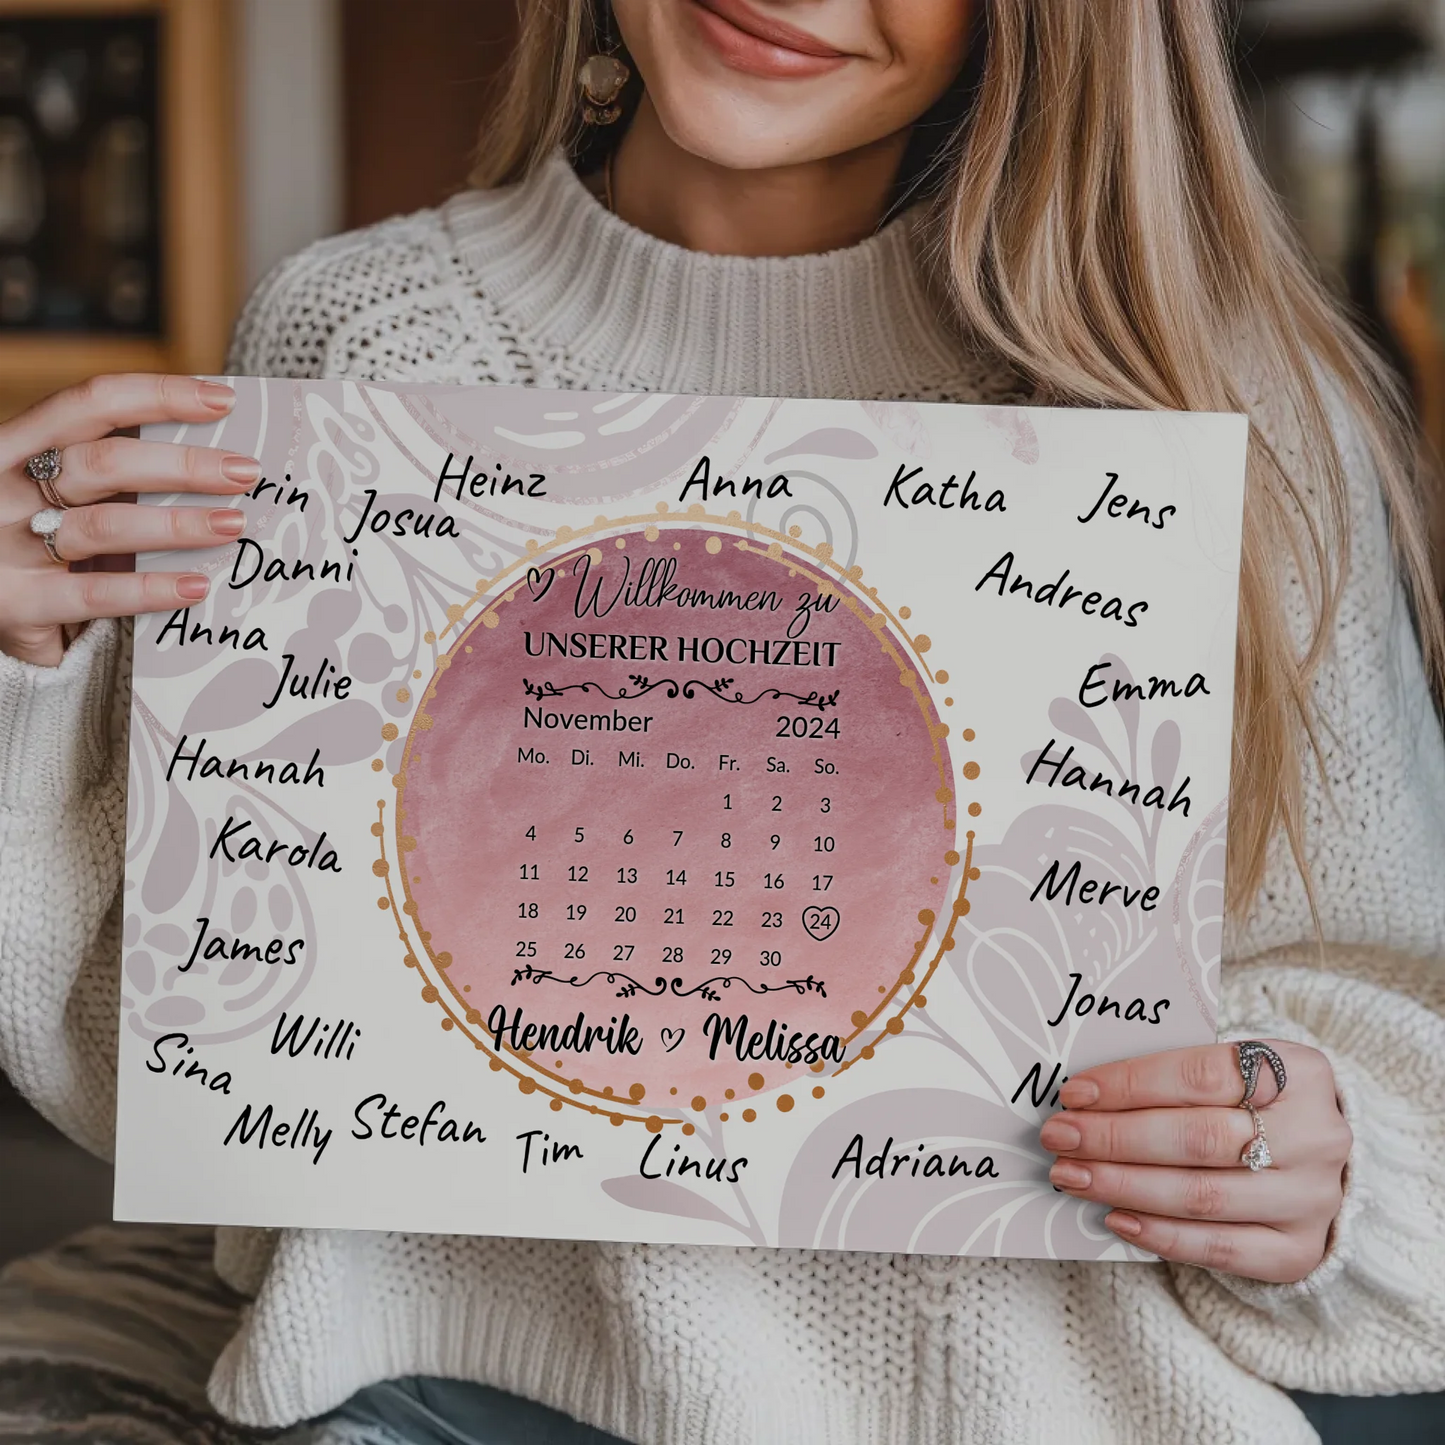 Heinz
Anna
Katha
Jens
Josua
Danni
Andreas
Anna
Julie
Emma
Hannah
Hannah
Karola
Merve
James
Jonas
Willi
Sina
Melly
Stefan
Tim
Linus
Adriana
Willkommen zu
UNSERER HOCHZEIT
November 2024
Mo. Di. Mi. Do. Fr. Sa. So.
1 2 3
4 5 6 7 8 9 10
11 12 13 14 15 16 17
18 19 20 21 22 23 24
25 26 27 28 29 30
Hendrik ♡ Melissa